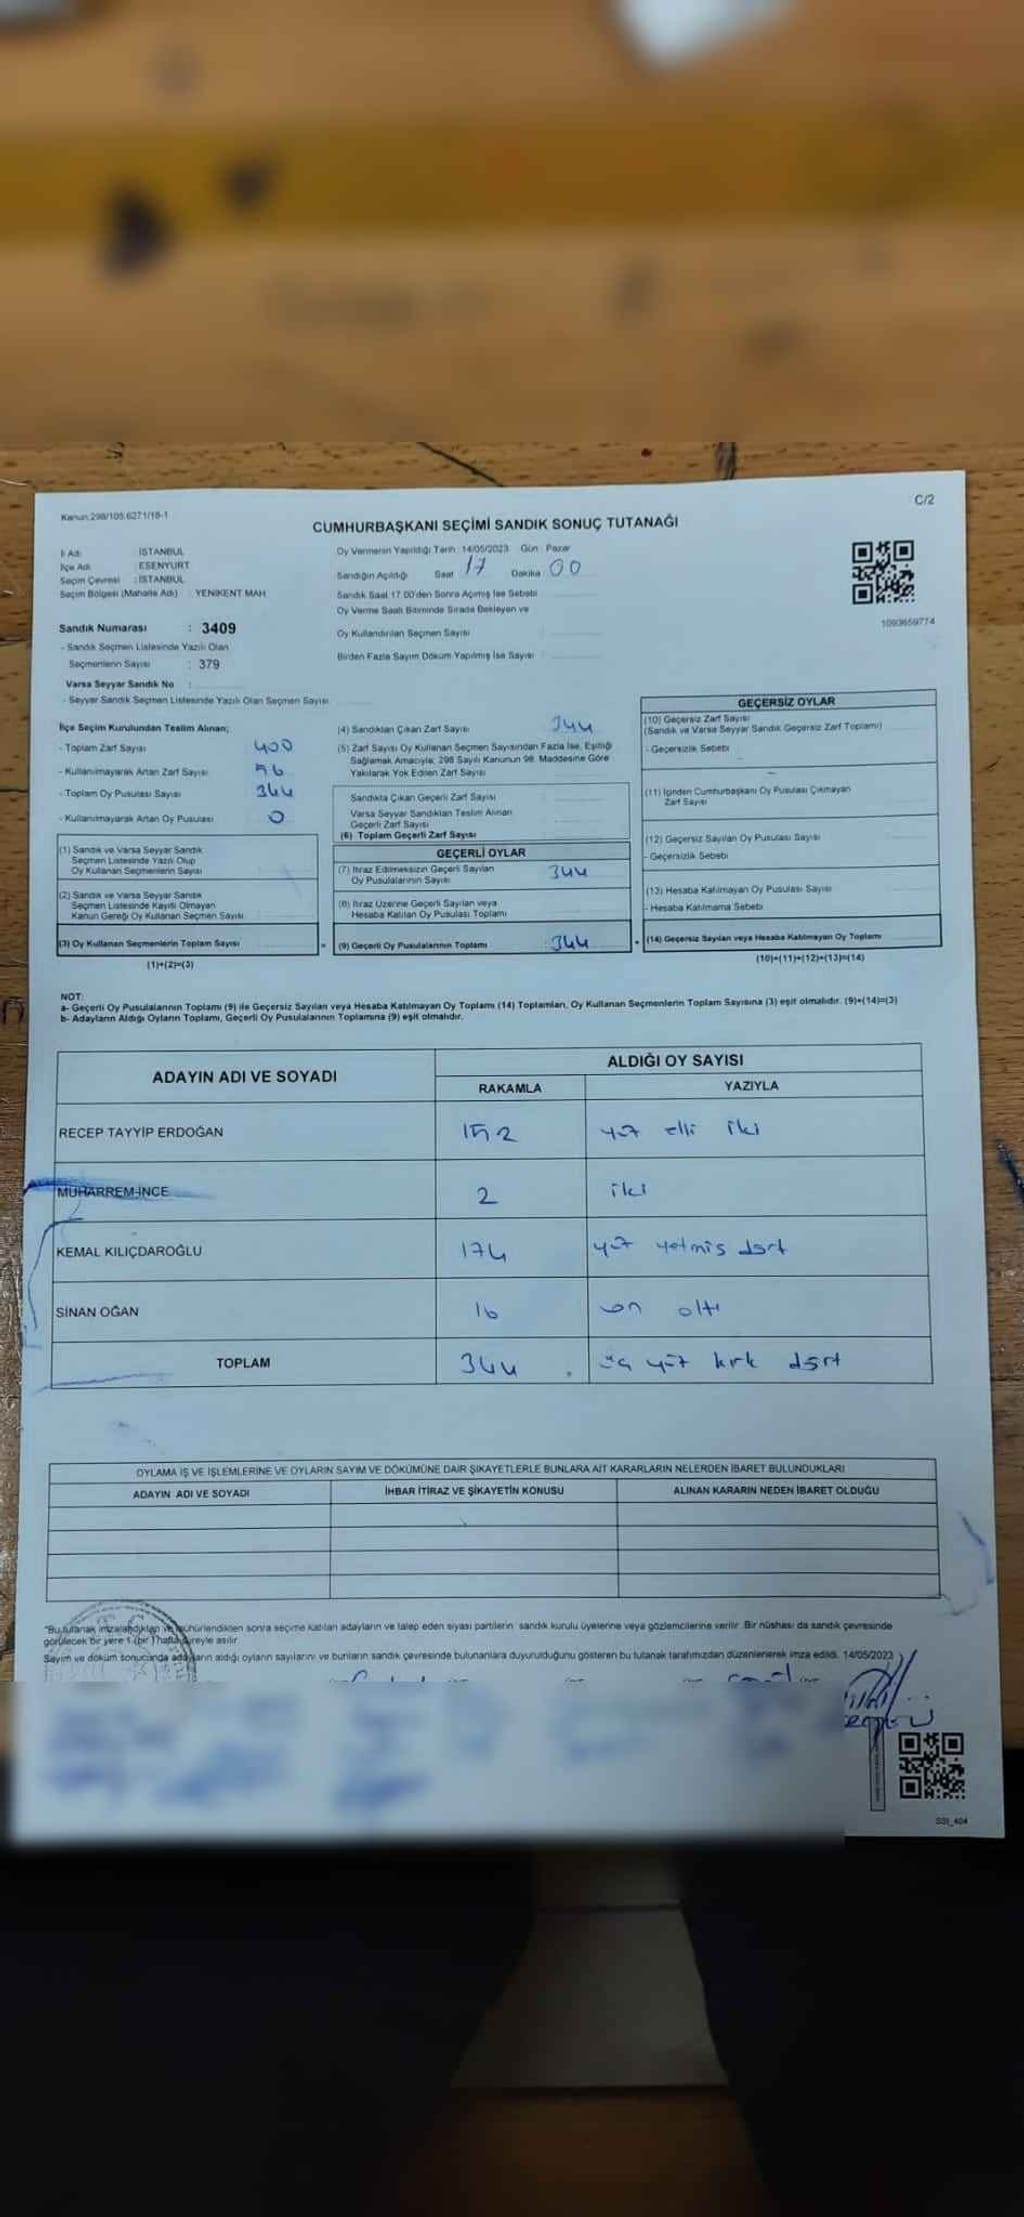 Kanun:298/105.6271/18-1
C/2
CUMHURBAŞKANI SEÇİMİ SANDIK SONUÇ TUTANAĞI
İl Adı : İSTANBUL
İlçe Adı : ESENYURT
Seçim Çevresi : İSTANBUL
Seçim Bölgesi (Mahalle Adı) : YENİKENT MAH.
Oy Vermenin Yapıldığı Tarih : 14/05/2023 Gün : Pazar
Sandığın Açıldığı Saat 17 Dakika 00
Sandık Saat 17.00'den Sonra Açılmış İse Sebebi
Oy Verme Saati Bitiminde Sırada Bekleyen ve
Oy Kullandırılan Seçmen Sayısı
Birden Fazla Sayım Döküm Yapılmış İse Sayısı
1093659774
Sandık Numarası : 3409
- Sandık Seçmen Listesinde Yazılı Olan
Seçmenlerin Sayısı : 379
Varsa Seyyar Sandık No :
- Seyyar Sandık Seçmen Listesinde Yazılı Olan Seçmen Sayısı
İlçe Seçim Kurulundan Teslim Alınan;
- Toplam Zarf Sayısı 400
- Kullanılmayarak Artan Zarf Sayısı 56
- Toplam Oy Pusulası Sayısı 344
- Kullanılmayarak Artan Oy Pusulası 0
(1) Sandık ve Varsa Seyyar Sandık
Seçmen Listesinde Yazılı Olup
Oy Kullanan Seçmenlerin Sayısı
(2) Sandık ve Varsa Seyyar Sandık
Seçmen Listesinde Kayıtlı Olmayan
Kanun Gereği Oy Kullanan Seçmen Sayısı
(3) Oy Kullanan Seçmenlerin Toplam Sayısı
(1)+(2)=(3)
(4) Sandıktan Çıkan Zarf Sayısı 344
(5) Zarf Sayısı Oy Kullanan Seçmen Sayısından Fazla İse, Eşitliği
Sağlamak Amacıyla; 298 Sayılı Kanunun 98. Maddesine Göre
Yakılarak Yok Edilen Zarf Sayısı
Sandıkta Çıkan Geçerli Zarf Sayısı
Varsa Seyyar Sandıktan Teslim Alınan
Geçerli Zarf Sayısı
(6) Toplam Geçerli Zarf Sayısı
GEÇERLİ OYLAR
(7) İtiraz Edilmeksizin Geçerli Sayılan
Oy Pusulalarının Sayısı 344
(8) İtiraz Üzerine Geçerli Sayılan veya
Hesaba Katılan Oy Pusulası Toplamı
= (9) Geçerli Oy Pusulalarının Toplamı : 344
GEÇERSİZ OYLAR
(10) Geçersiz Zarf Sayısı
(Sandık ve Varsa Seyyar Sandık Geçersiz Zarf Toplamı)
- Geçersizlik Sebebi
(11) İçinden Cumhurbaşkanı Oy Pusulası Çıkmayan
Zarf Sayısı
(12) Geçersiz Sayılan Oy Pusulası Sayısı
- Geçersizlik Sebebi
(13) Hesaba Katılmayan Oy Pusulası Sayısı
- Hesaba Katılmama Sebebi
+ (14) Geçersiz Sayılan veya Hesaba Katılmayan Oy Toplamı
(10)+(11)+(12)+(13)=(14)
NOT:
a- Geçerli Oy Pusulalarının Toplamı (9) ile Geçersiz Sayılan veya Hesaba Katılmayan Oy Toplamı (14) Toplamları, Oy Kullanan Seçmenlerin Toplam Sayısına (3) eşit olmalıdır. (9)+(14)=(3)
b- Adayların Aldığı Oyların Toplamı, Geçerli Oy Pusulalarının Toplamına (9) eşit olmalıdır.
ADAYIN ADI VE SOYADI
ALDIĞI OY SAYISI
RAKAMLA YAZIYLA
RECEP TAYYİP ERDOĞAN 152 yüz elli iki
MUHARREM İNCE 2 iki
KEMAL KILIÇDAROĞLU 174 yüz yetmiş dört
SİNAN OĞAN 16 on altı
TOPLAM 344 üç yüz kırk dört
OYLAMA İŞ VE İŞLEMLERİNE VE OYLARIN SAYIM VE DÖKÜMÜNE DAİR ŞİKAYETLERLE BUNLARA AİT KARARLARIN NELERDEN İBARET BULUNDUKLARI
ADAYIN ADI VE SOYADI İHBAR İTİRAZ VE ŞİKAYETİN KONUSU ALINAN KARARIN NEDEN İBARET OLDUĞU
"Bu tutanak imzalandıktan ve mühürlendikten sonra seçime katılan adayların ve talep eden siyasi partilerin sandık kurulu üyelerine veya gözlemcilerine verilir. Bir nüshası da sandık çevresinde
görülecek bir yere 1 (bir) hafta süreyle asılır.
Sayım ve döküm sonucunda adayların aldığı oyların sayılarını ve bunların sandık çevresinde bulunanlara duyurulduğunu gösteren bu tutanak tarafımızdan düzenlenerek imza edildi. 14/05/2023
SSI_404